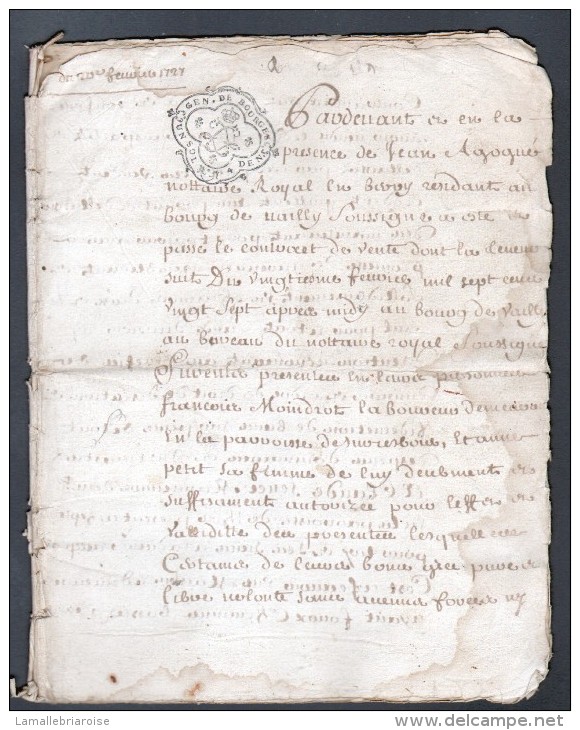 du 20e feuvrier 1727
GEN. DE BOURGES
DEN
Pardevant et en la
presence de Jean Agogué
nottaire Royal en Berry residant au
bourg de Vailly soussigné a esté
passé le contract de vente dont la teneur
suit Du vingtiesme feuvrier mil sept cent
vingt sept apres midy au bourg de Vailly
au bureau du nottaire royal soussigné
furent presente en leurs personnes
francois Moindrot laboureur demeurant
en la parroisse de
petit sa femme de luy deubment et
suffisament autorizée pour leffet et
validitté des presentes lesquelle
de leurs bonne gré pure et
libre volonté sans aucune force ny
Lamallebriaroise
www.delcampe.net